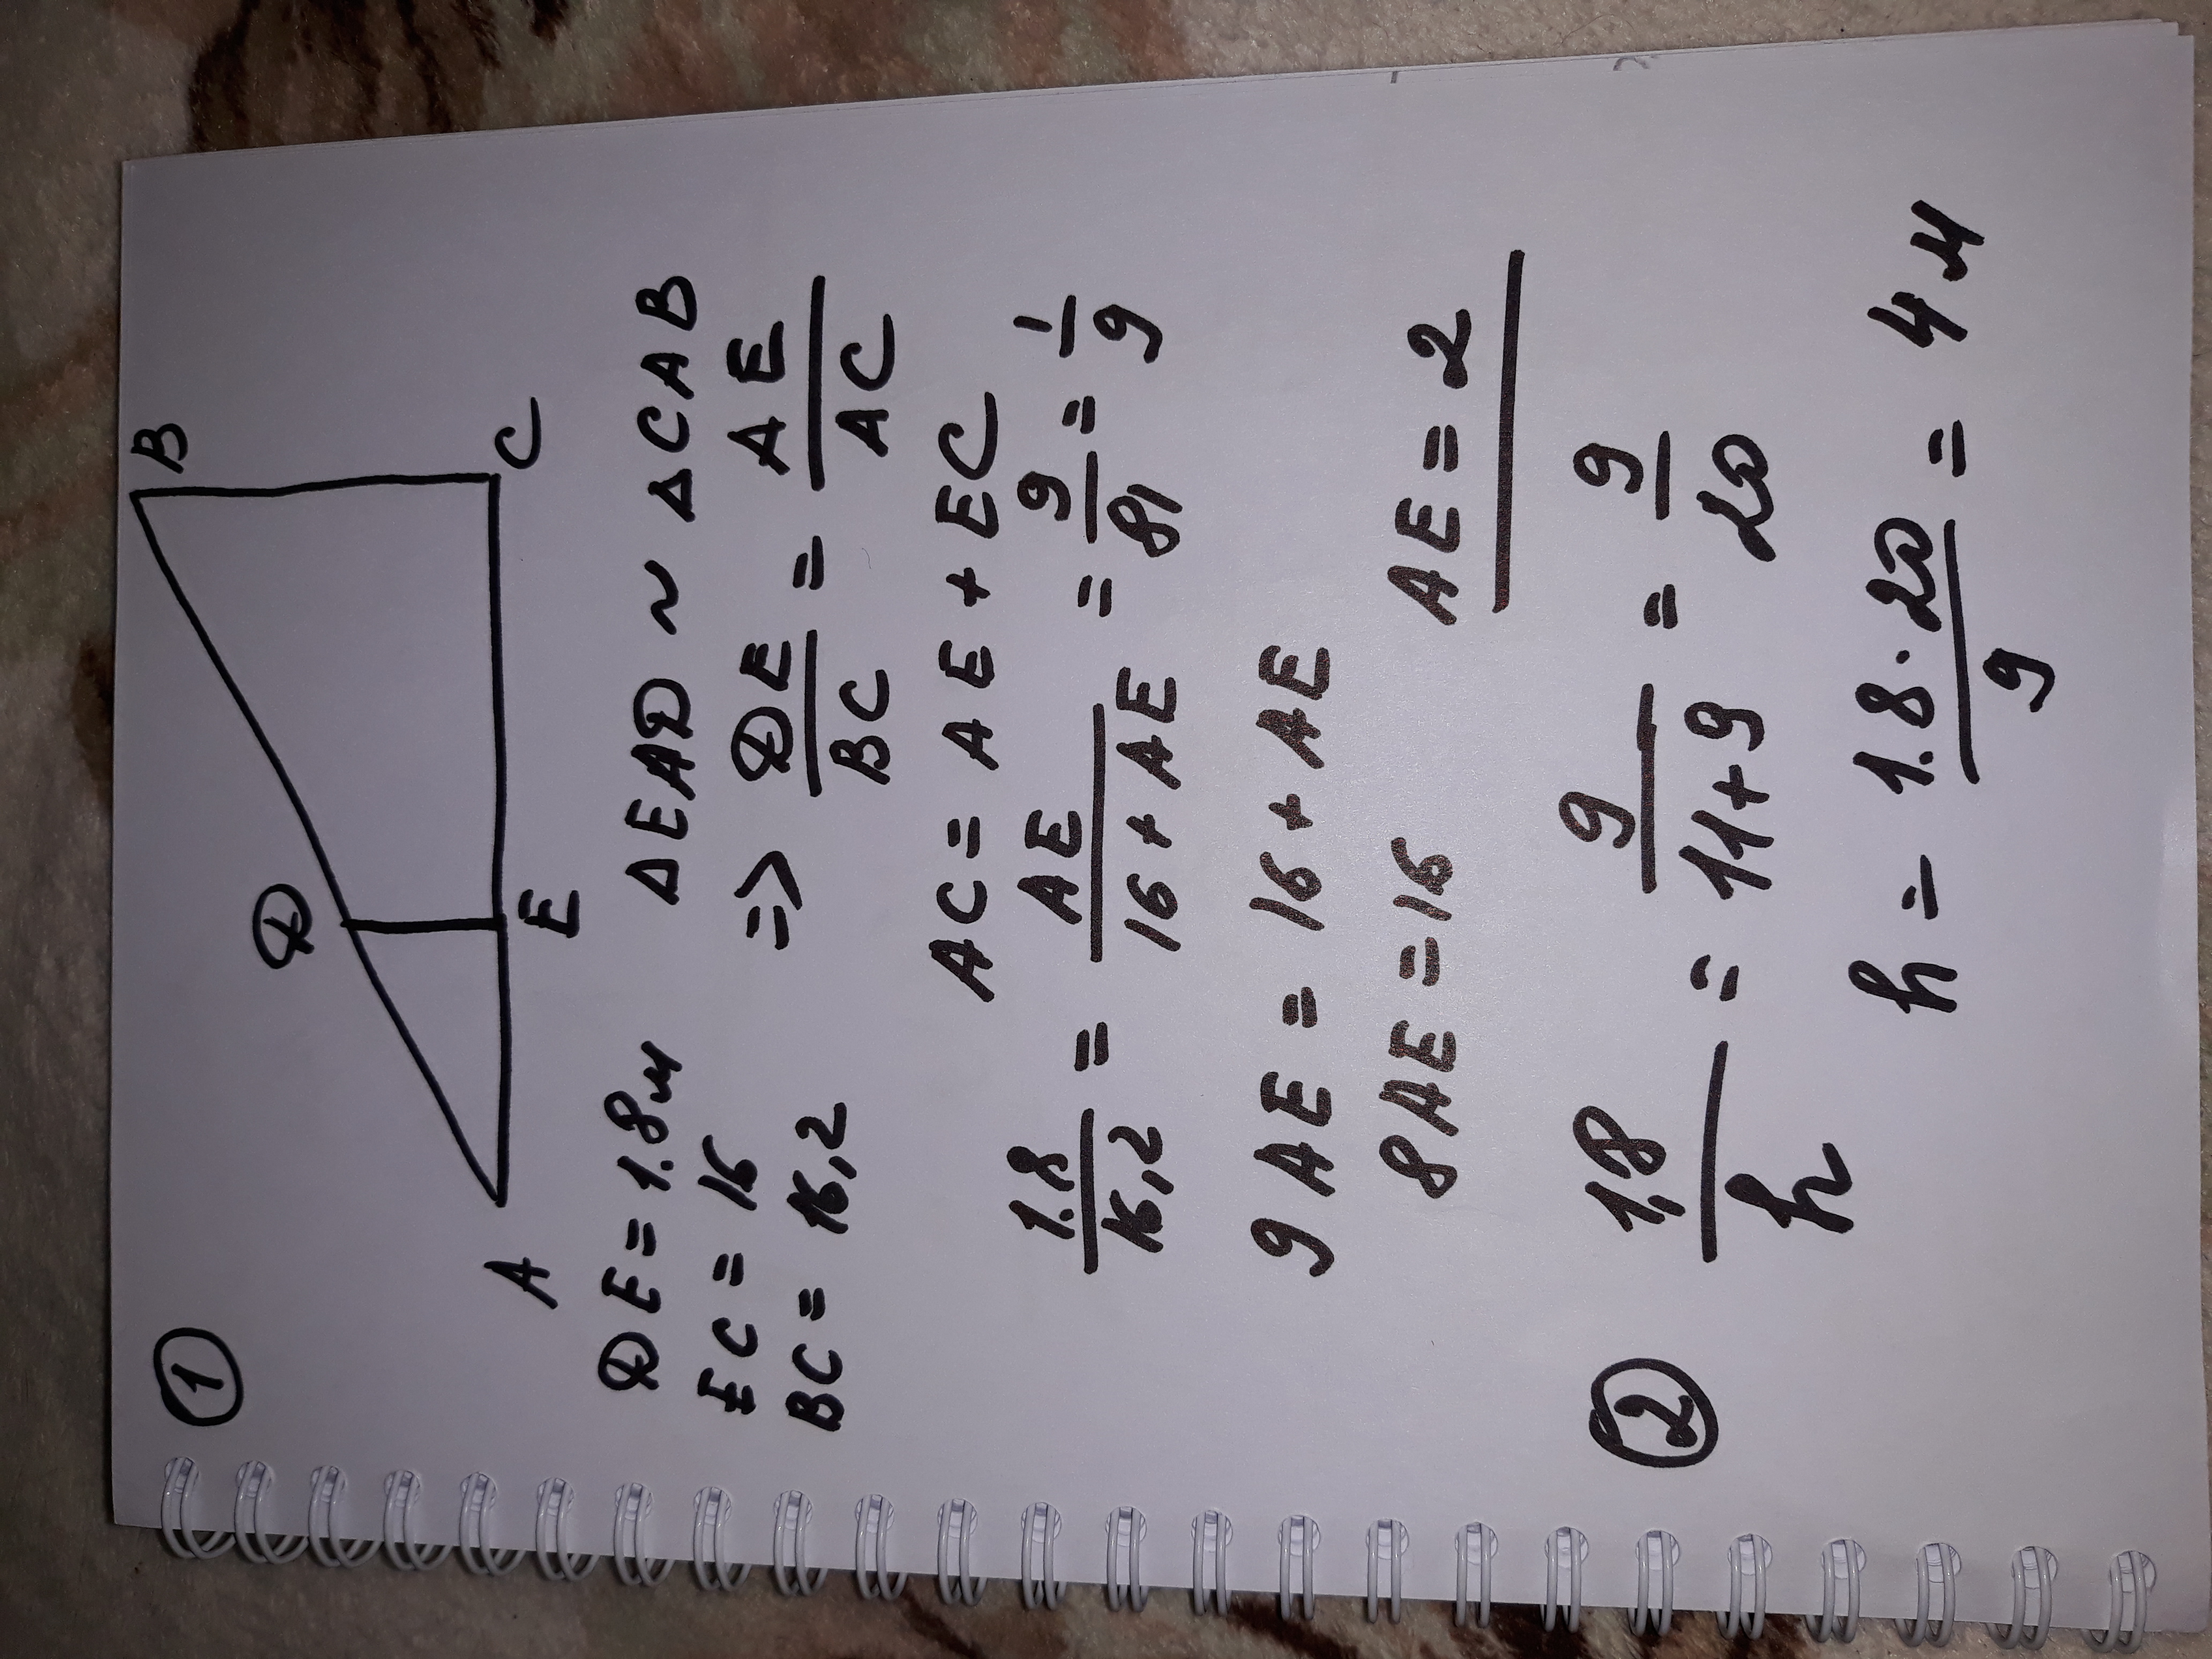 ①
B
D
A
E
C
DE = 1.8м
EC = 16
BC = 16,2
ΔEAD ~ ΔCAB
=> DE/BC = AE/AC
AC = AE + EC
1.8/16,2 = AE/16+AE = 9/81 = 1/9
9AE = 16 + AE
8AE = 16
AE = 2
②
1,8/h = 9/11+9 = 9/20
h = 1.8·20/9 = 4м